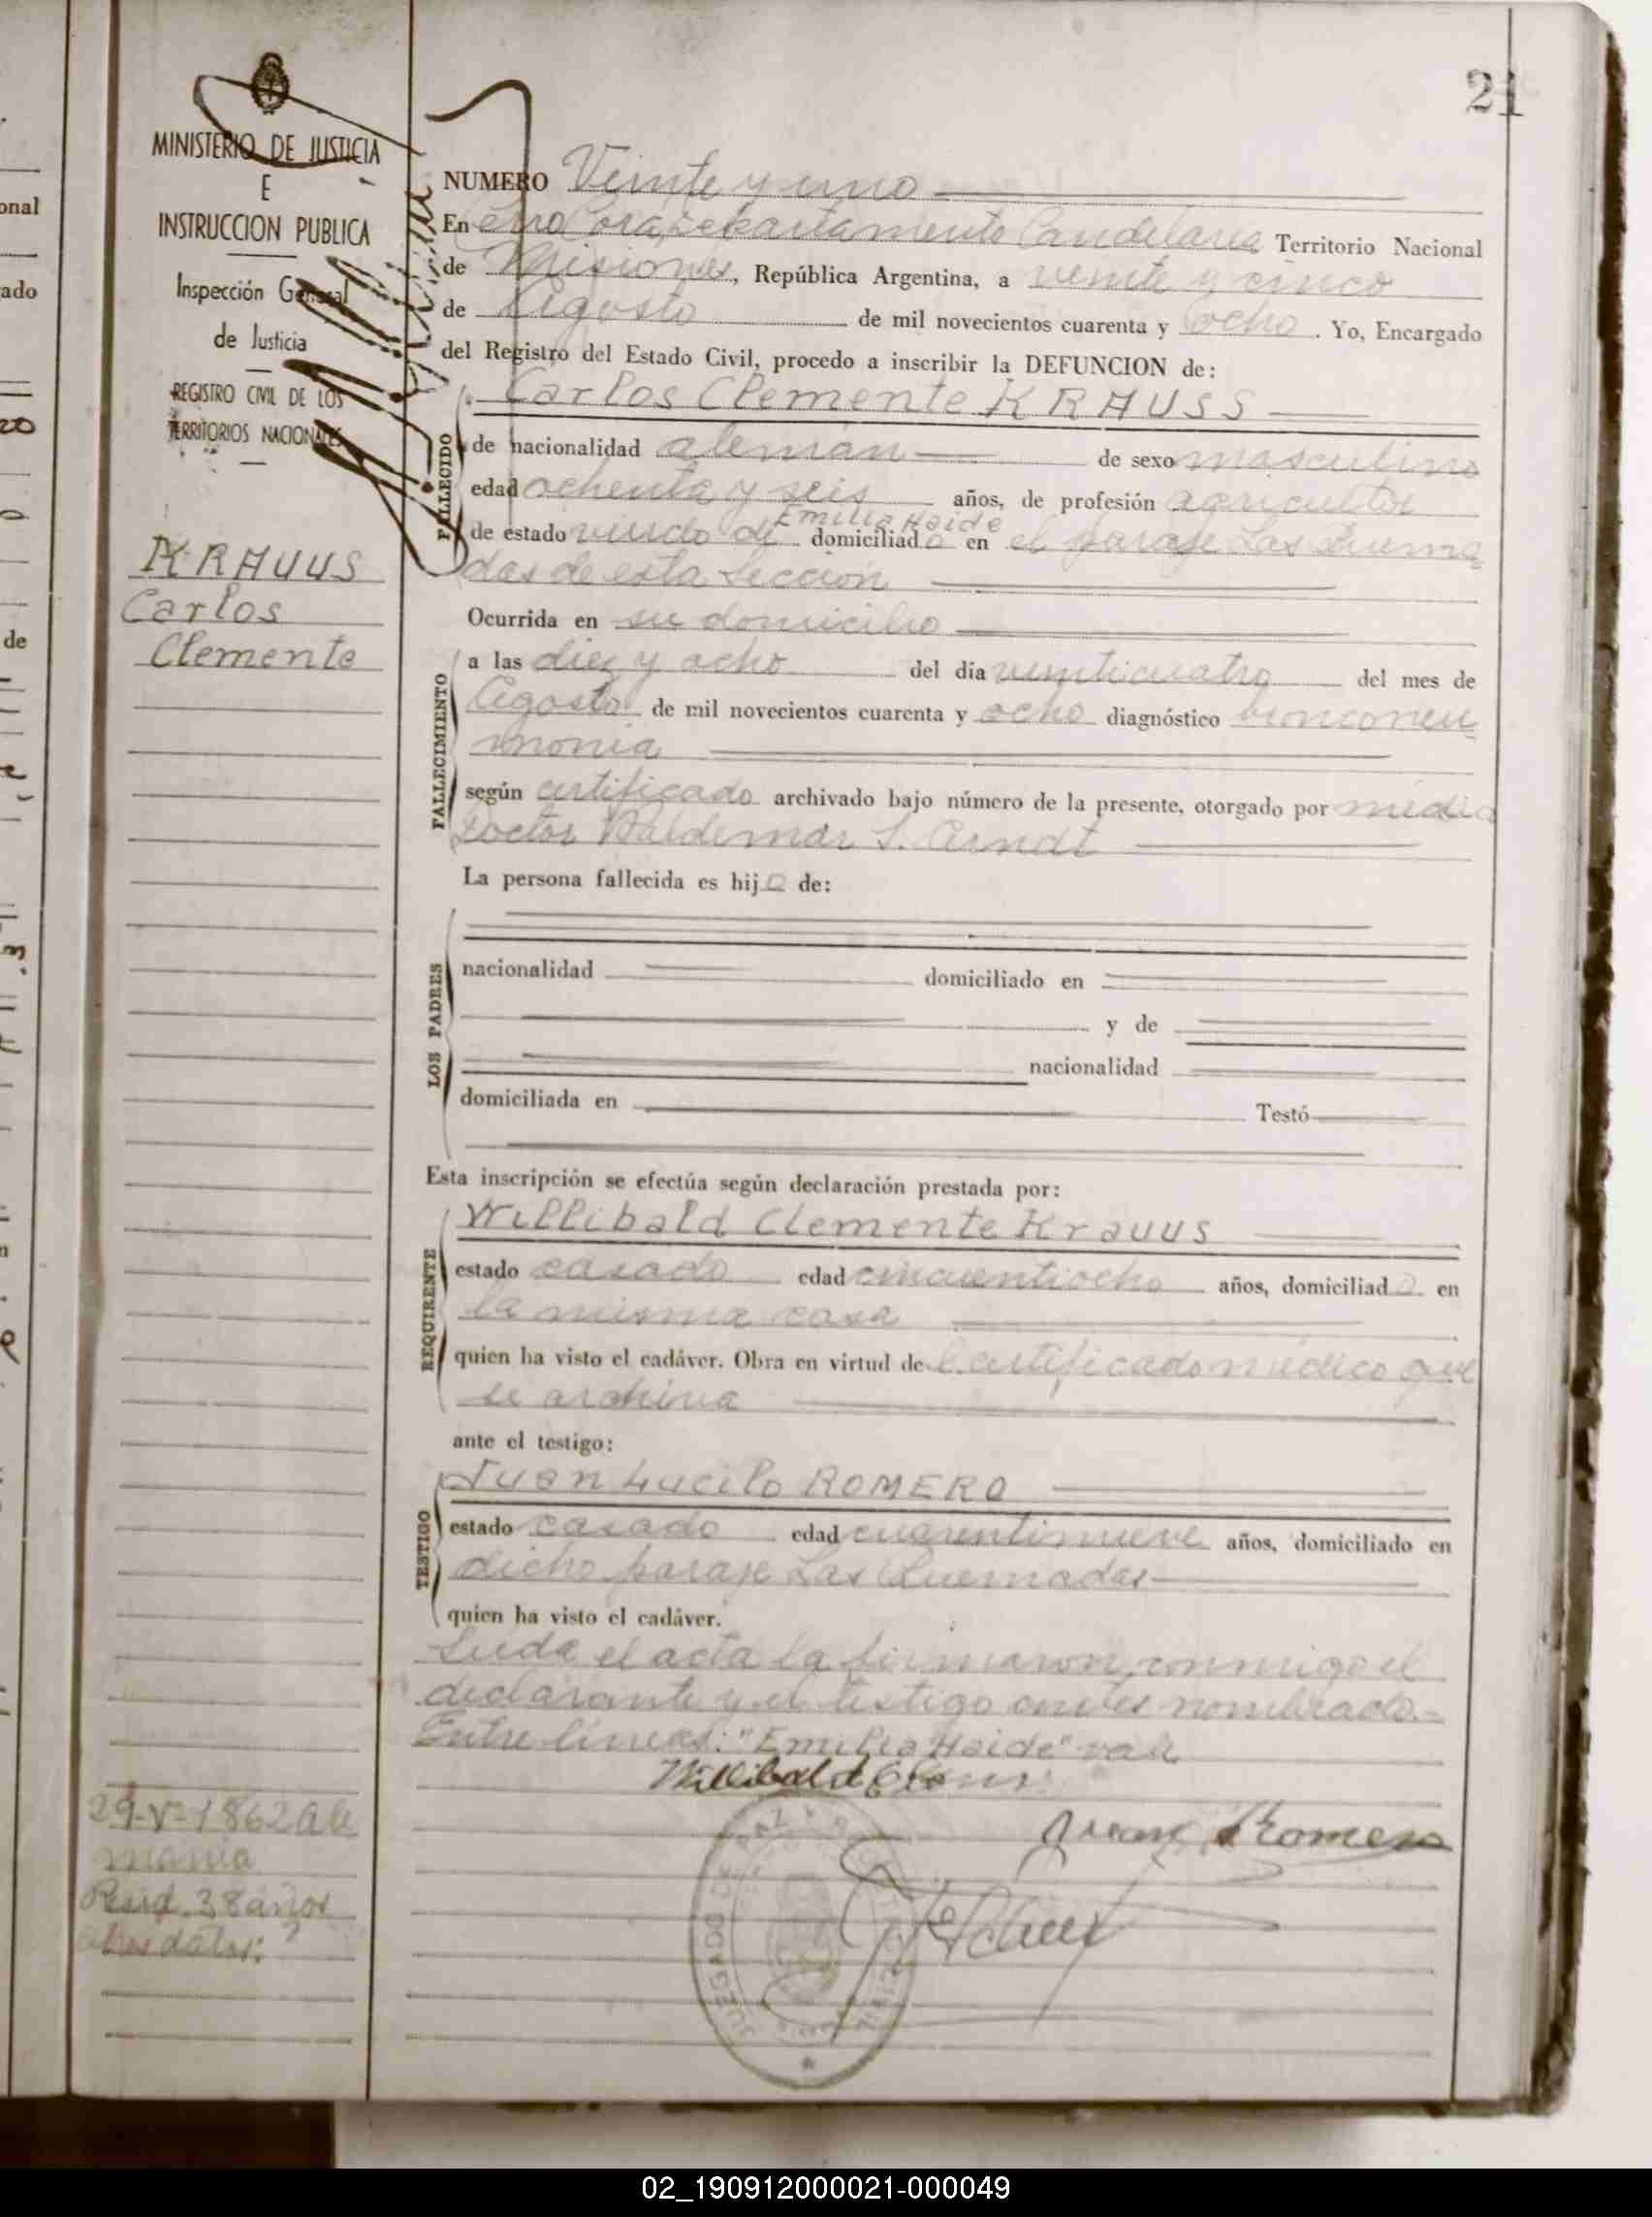 21
MINISTERIO DE JUSTICIA
E
INSTRUCCION PUBLICA
Inspección General
de Justicia
REGISTRO CIVIL DE LOS
TERRITORIOS NACIONALES
KRAUUS
Carlos
Clemente
NUMERO Veinte y uno
En Cerro Corá, Departamento Candelaria Territorio Nacional
de Misiones, República Argentina, a veinte y cinco
de Agosto de mil novecientos cuarenta y ocho. Yo, Encargado
del Registro del Estado Civil, procedo a inscribir la DEFUNCION de:
Carlos Clemente KRAUSS
FALLECIDO
de nacionalidad alemán de sexo masculino
edad ochenta y seis años, de profesión agricultor
Emilia Haide
de estado viudo de domiciliado en el paraje Las Quema
das de esta Sección
Ocurrida en su domicilio
FALLECIMIENTO
a las diez y ocho del día veinticuatro del mes de
Agosto de mil novecientos cuarenta y ocho diagnóstico bronconeu
monia
según certificado archivado bajo número de la presente, otorgado por médico
Doctor Waldemar S. Arndt
La persona fallecida es hijo de:
LOS PADRES
nacionalidad domiciliado en
y de
nacionalidad
domiciliada en Testó
Esta inscripción se efectúa según declaración prestada por:
Willibald Clemente Krauus
REQUIRENTE
estado casado edad cincuentiocho años, domiciliado en
la misma casa
quien ha visto el cadáver. Obra en virtud de certificado médico que
se archiva
ante el testigo:
Juan Lucilo ROMERO
TESTIGO
estado casado edad cuarentinueve años, domiciliado en
dicho paraje Las Quemadas
quien ha visto el cadáver.
Leida el acta la firmaron conmigo el
declarante y el testigo antes nombrado.=
Entre lineas: "Emilia Haide" vale
Willibald
Juan Romero
29-V-1862 Ale
mania
Resid. 38 años
otros datos: ?
JUZGADO DE PAZ
02_190912000021-000049